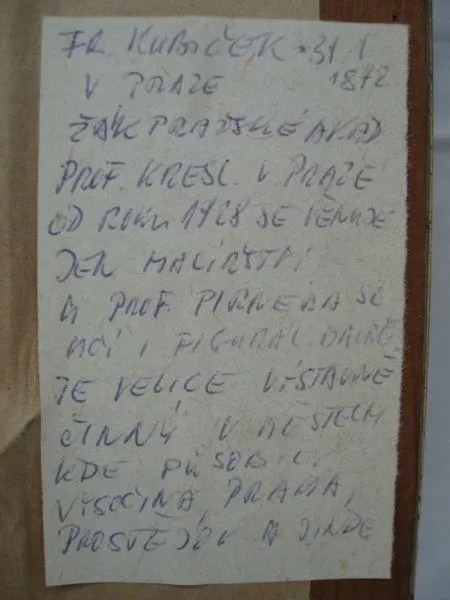 FR. KUBIČEK *31.1
V PRAZE 1872
ŽÁK PRAŽSKÉ AKAD
PROF. KRESL. V PRAZE
OD ROKU 1928 SE VĚNUJE
JEN MALÍŘSTVÍ
U PROF. PIRNERA SE
UČÍ I FIGURAL.
JE VELICE VÝSTAVNĚ
ČINNÝ V MĚSTECH
KDE PŮSOBIL.
VYSOČINA, PRAHA,
PROSTĚJOV A JINDE